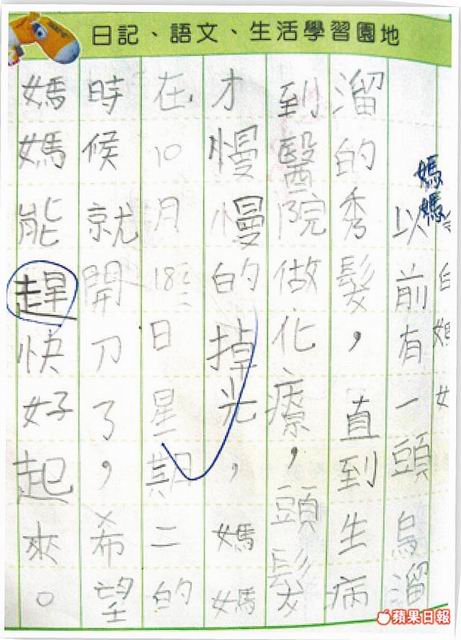 日記、語文、生活學習園地
媽媽以前有一頭烏溜
溜的秀髮，直到生病
到醫院做化療，頭髮
才慢慢的掉光，媽媽
在10月18日星期二的
時候就開刀了，希望
媽媽能趕快好起來。
蘋果日報